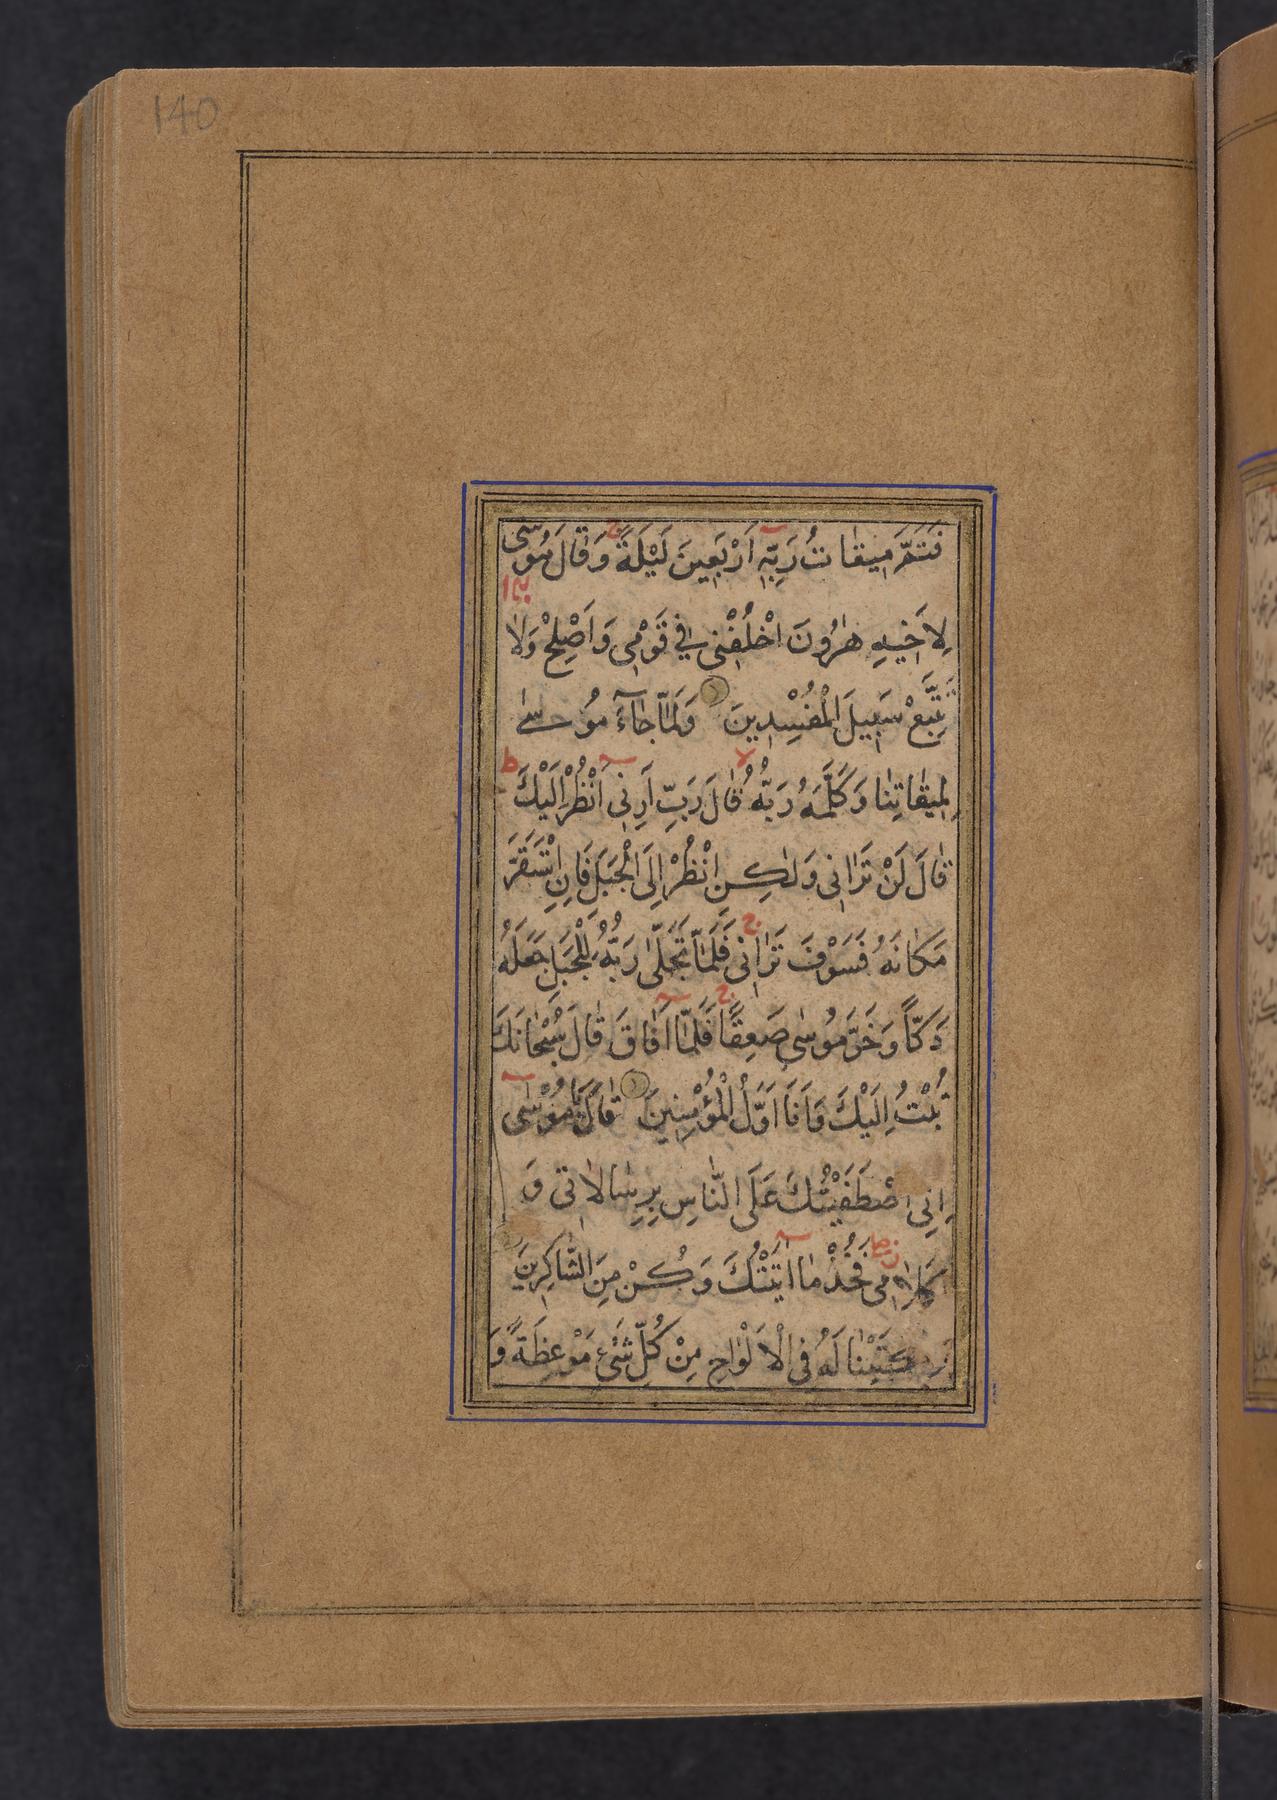 140
فَتَمَّ مِيقَاتُ رَبِّهِ اَرْبَعِينَ لَيْلَةً وَقَالَ مُوسٰى
لِاَخِيهِ هٰرُونَ اخْلُفْنِى فِى قَوْمِى وَاَصْلِحْ وَلَا
تَتَّبِعْ سَبِيلَ الْمُفْسِدِينَ وَلَمَّا جَآءَ مُوسٰى
لِمِيقَاتِنَا وَكَلَّمَهُ رَبُّهُ قَالَ رَبِّ اَرِنِى اَنْظُرْ اِلَيْكَ
قَالَ لَنْ تَرَانِى وَلٰكِنِ انْظُرْ اِلَى الْجَبَلِ فَاِنِ اسْتَقَرَّ
مَكَانَهُ فَسَوْفَ تَرَانِى فَلَمَّا تَجَلّٰى رَبُّهُ لِلْجَبَلِ جَعَلَهُ
دَكًّا وَخَرَّ مُوسٰى صَعِقًا فَلَمَّا اَفَاقَ قَالَ سُبْحَانَكَ
تُبْتُ اِلَيْكَ وَاَنَا اَوَّلُ الْمُؤْمِنِينَ قَالَ يَا مُوْسٰى
اِنِّى اصْطَفَيْتُكَ عَلَى النَّاسِ بِرِسَالَاتِى وَ
بِكَلَامِى فَخُذْ مَا اٰتَيْتُكَ وَكُنْ مِنَ الشَّاكِرِينَ
وَكَتَبْنَا لَهُ فِى الْاَلْوَاحِ مِنْ كُلِّ شَىْءٍ مَوْعِظَةً وَ